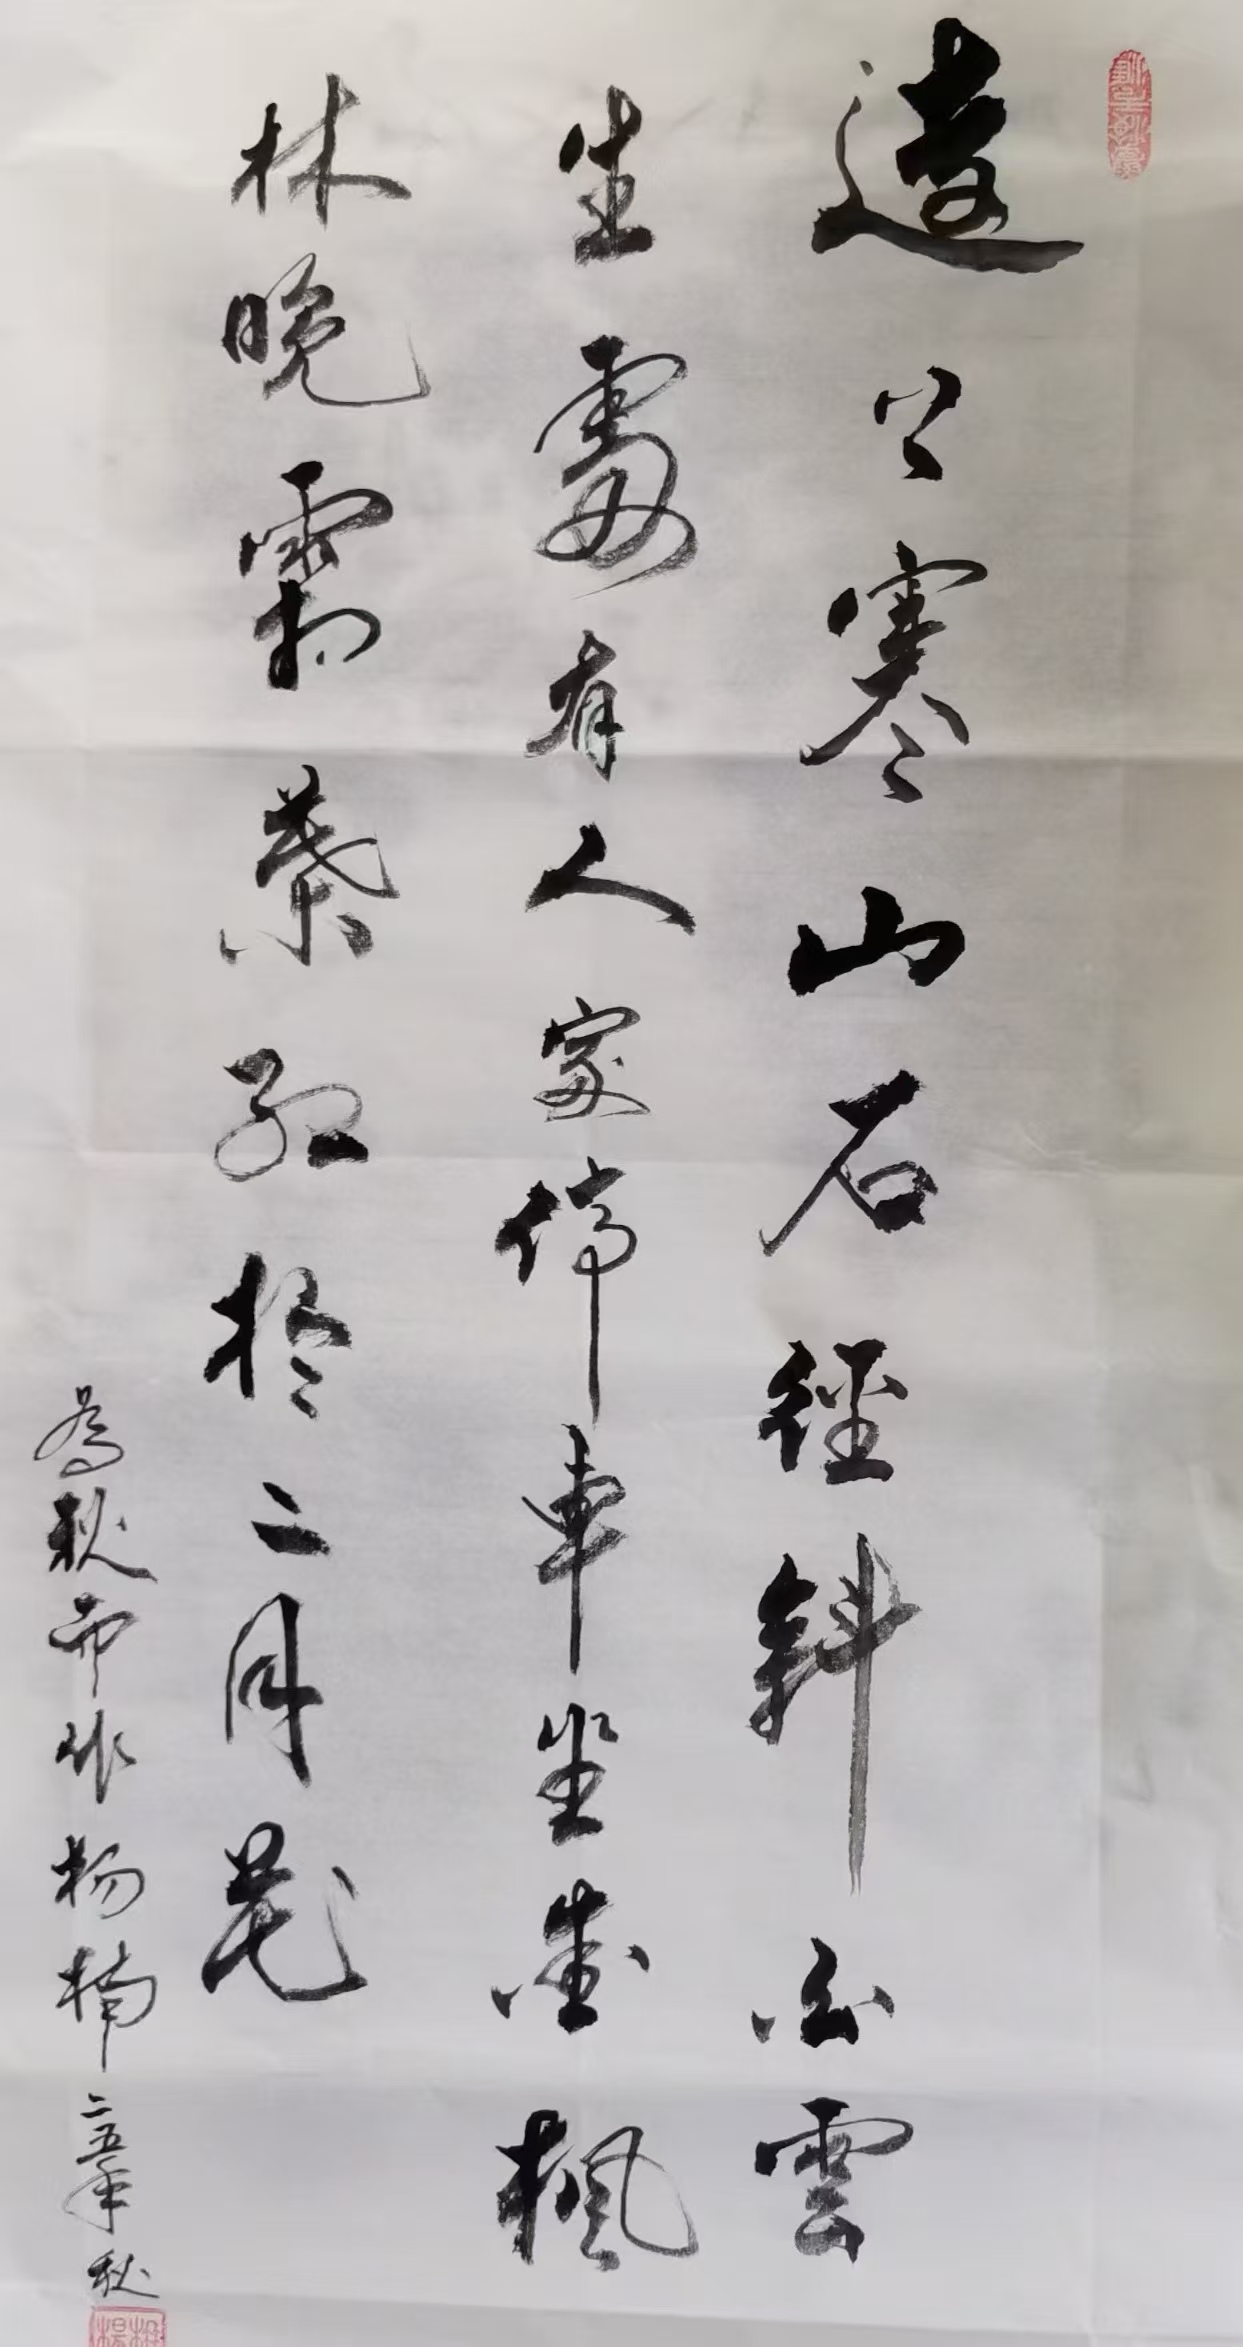 遠上寒山石徑斜白雲
生處有人家停車坐愛楓
林晚霜葉紅於二月花
為秋而作杨楠二五年秋